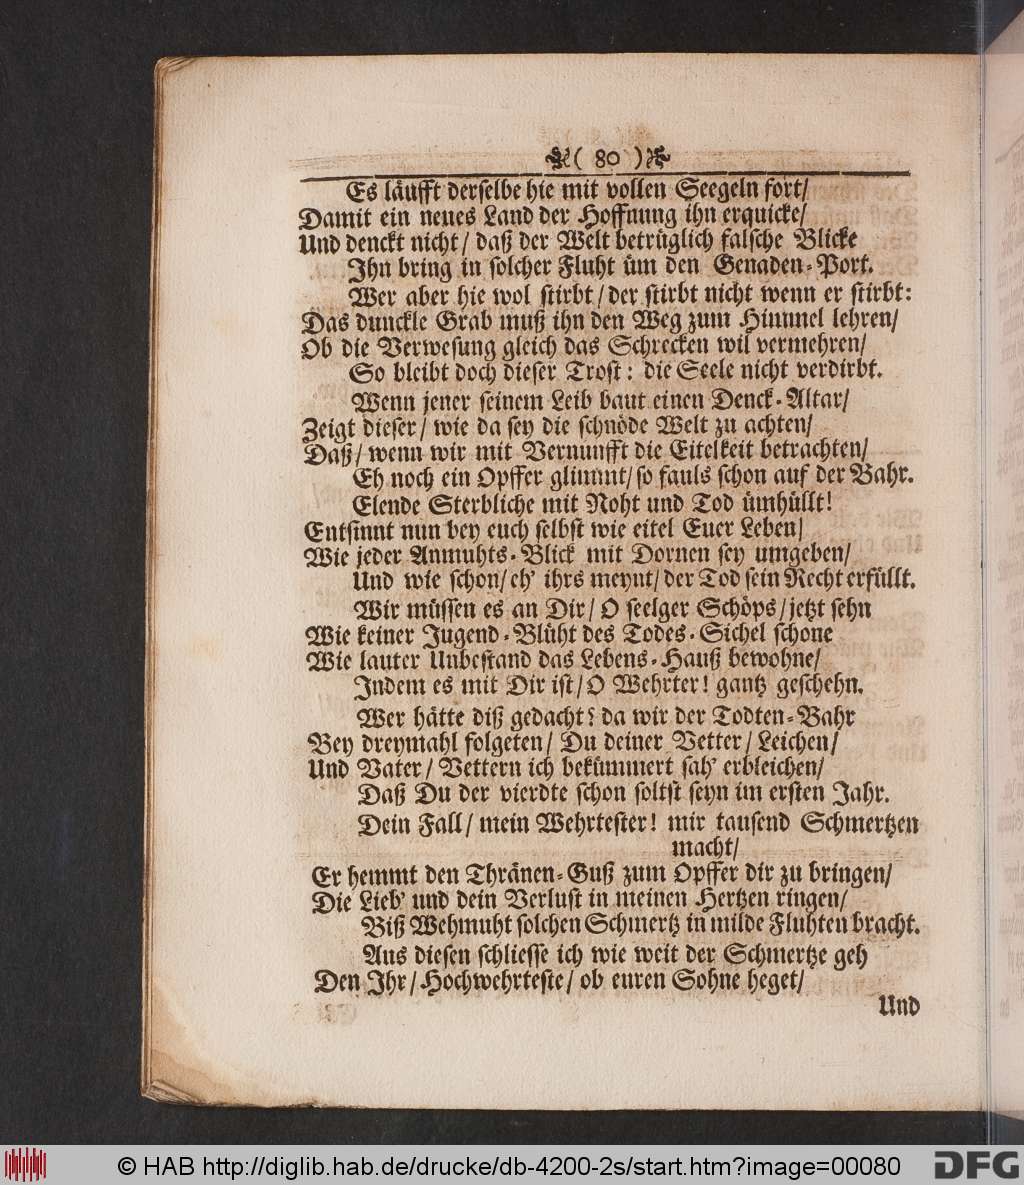 ( 80 )
Es läufft derselbe hie mit vollen Seegeln fort/
Damit ein neues Land der Hoffnung ihn erquicke/
Und denckt nicht/ daß der Welt betrüglich falsche Blicke
Ihn bring in solcher Fluht üm den Genaden-Port.
Wer aber hie wol stirbt/ der stirbt nicht wenn er stirbt:
Das dunckle Grab muß ihn den Weg zum Himmel lehren/
Ob die Verwesung gleich das Schrecken wil vermehren/
So bleibt doch dieser Trost: die Seele nicht verdirbt.
Wenn jener seinem Leib baut einen Denck-Altar/
Zeigt dieser/ wie da sey die schnöde Welt zu achten/
Daß/ wenn wir mit Vernunfft die Eitelkeit betrachten/
Eh noch ein Opffer glimmt/ so fauls schon auf der Bahr.
Elende Sterbliche mit Noht und Tod ümhüllt!
Entsinnt nun bey euch selbst wie eitel Euer Leben/
Wie jeder Anmuhts-Blick mit Dornen sey umgeben/
Und wie schon/ eh' ihrs meynt/ der Tod sein Recht erfüllt.
Wir müssen es an Dir/ O seelger Schöps/ jetzt sehn
Wie keiner Jugend-Blüht des Todes-Sichel schone
Wie lauter Unbestand das Lebens-Hauß bewohne/
Indem es mit Dir ist/ O Wehrter! gantz geschehn.
Wer hätte diß gedacht? da wir der Todten-Bahr
Bey dreymahl folgeten/ Du deiner Vetter/ Leichen/
Und Vater/ Vettern ich bekümmert sah' erbleichen/
Daß Du der vierdte schon soltst seyn im ersten Jahr.
Dein Fall/ mein Wehrtester! mir tausend Schmertzen
macht/
Er hemmt den Thränen-Guß zum Opffer dir zu bringen/
Die Lieb' und dein Verlust in meinen Hertzen ringen/
Biß Wehmuht solchen Schmertz in milde Fluhten bracht.
Aus diesen schliesse ich wie weit der Schmertze geh
Den Ihr/ Hochwehrteste/ ob euren Sohne heget/
Und
© HAB http://diglib.hab.de/drucke/db-4200-2s/start.htm?image=00080
DFG